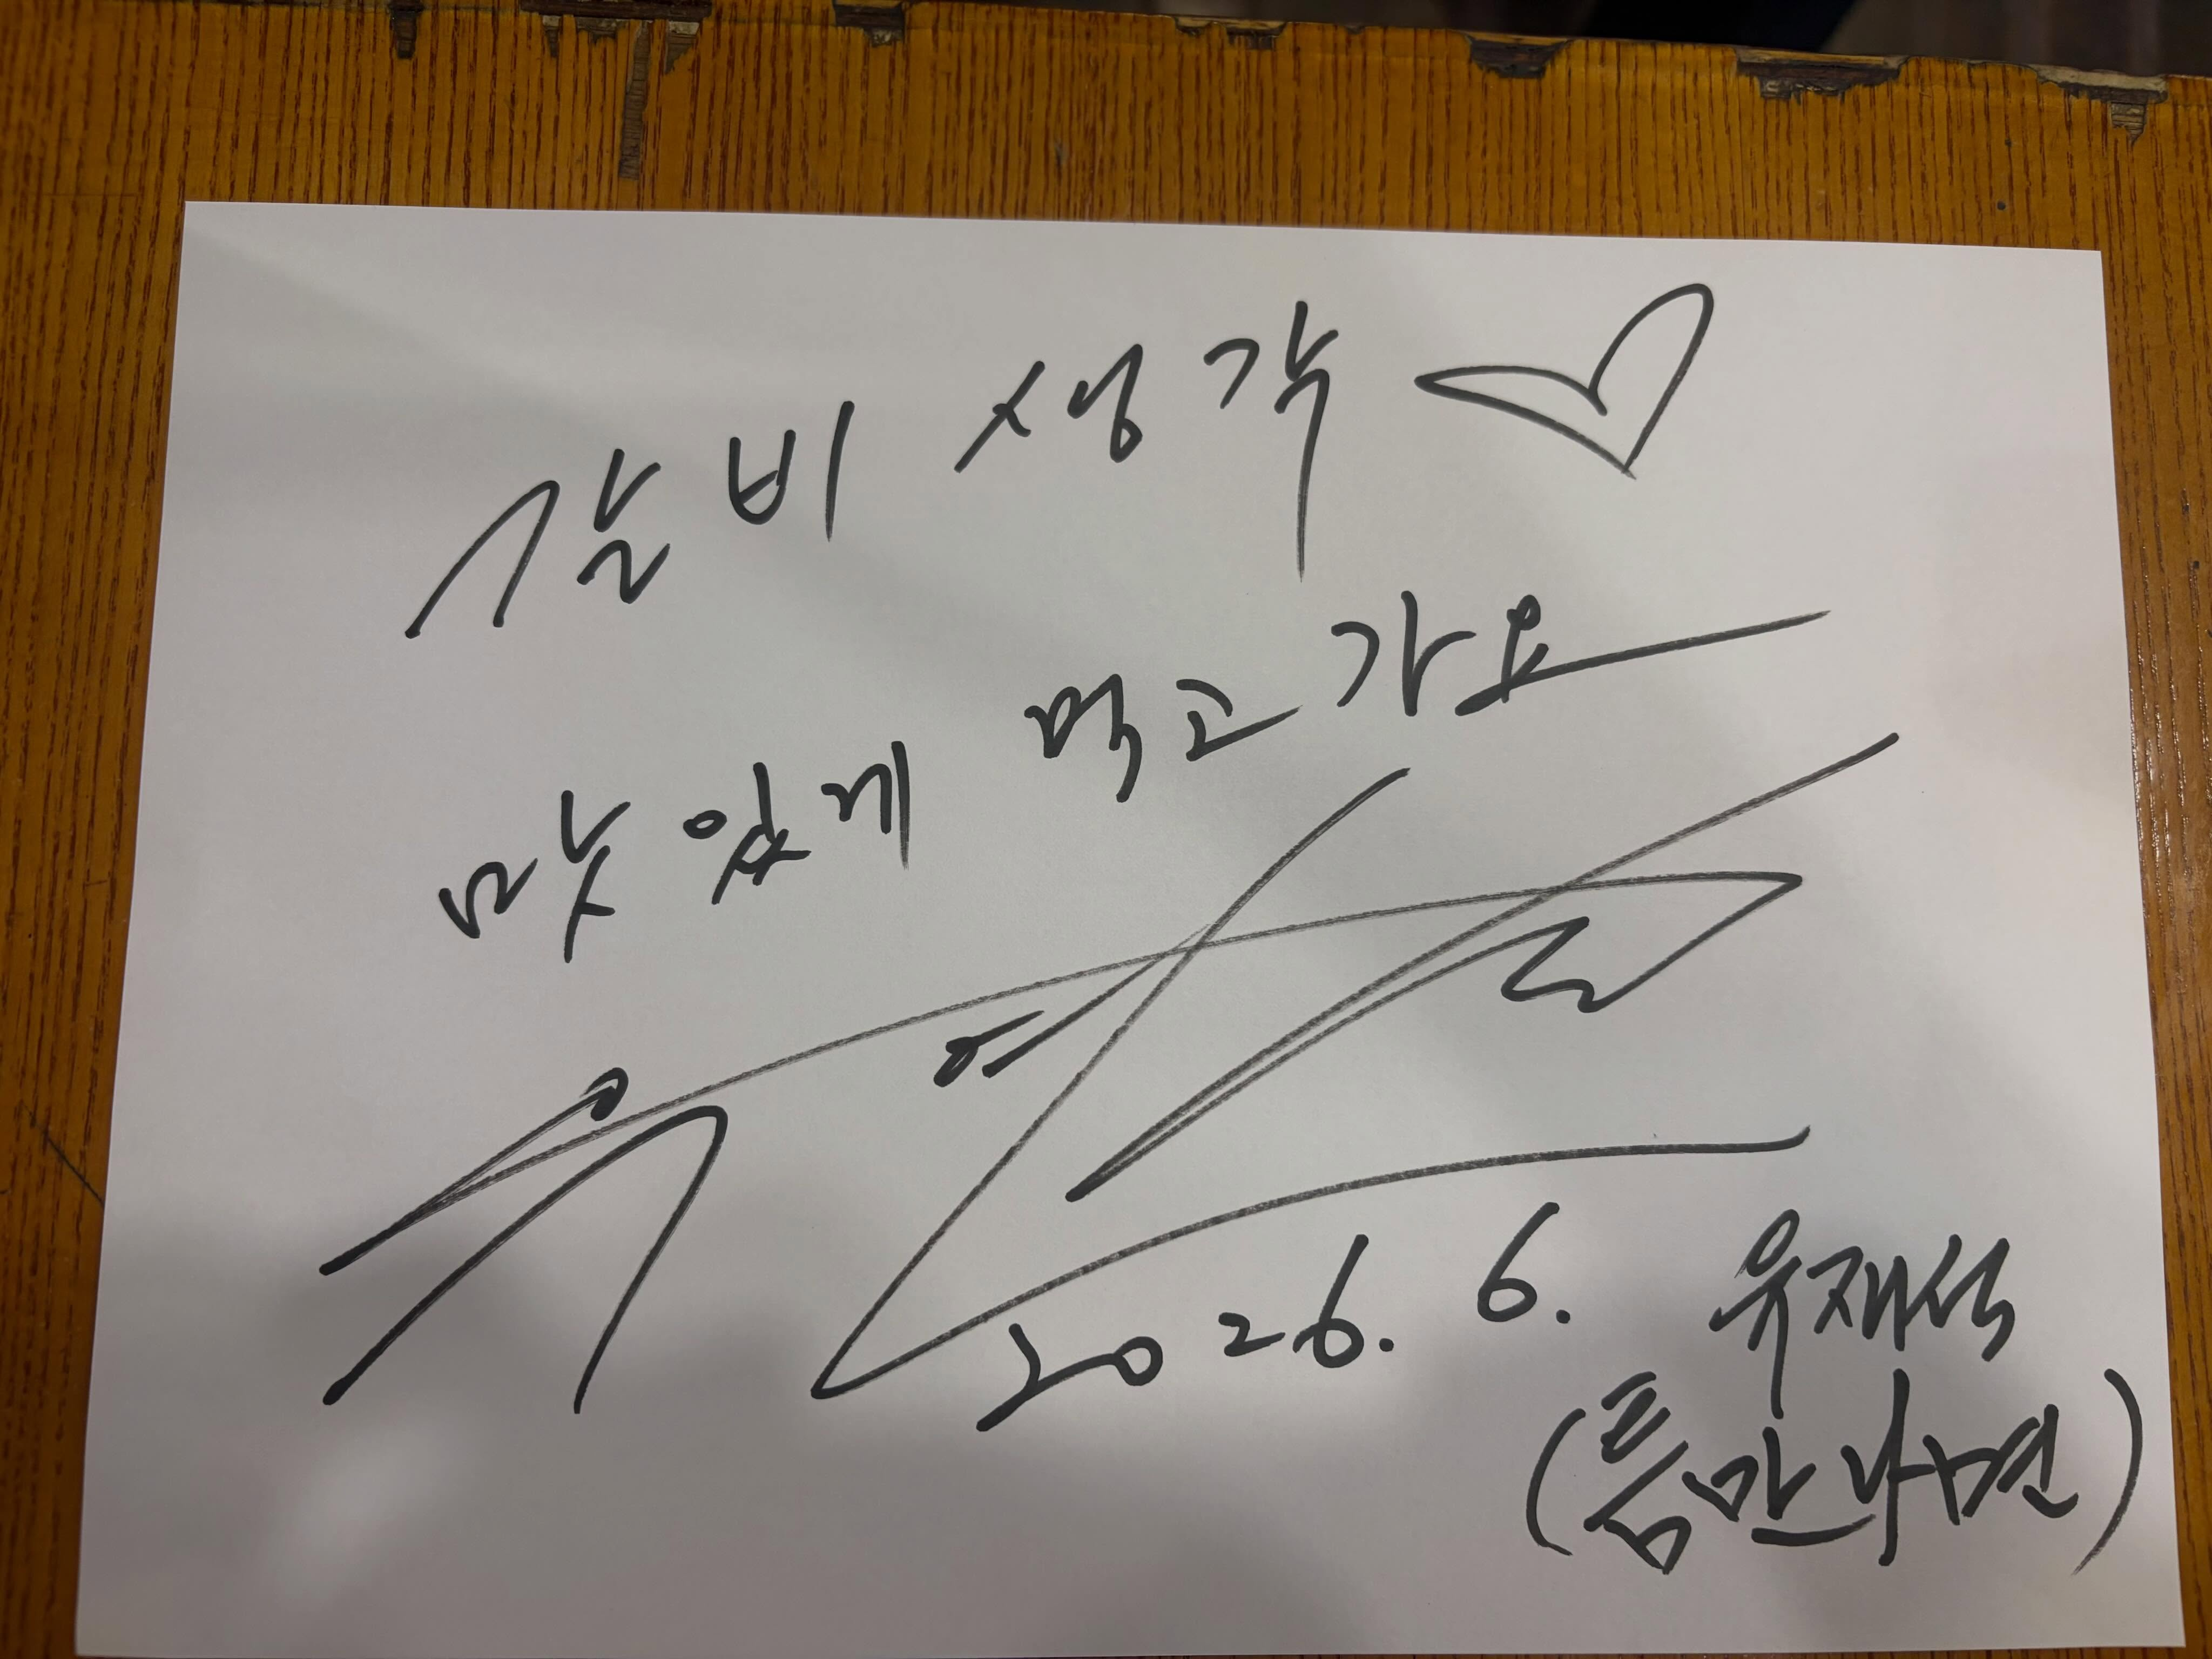 갈비 생각 ♡
맛있게 먹고 가요
2026. 6. 유재석
(틈만나면)